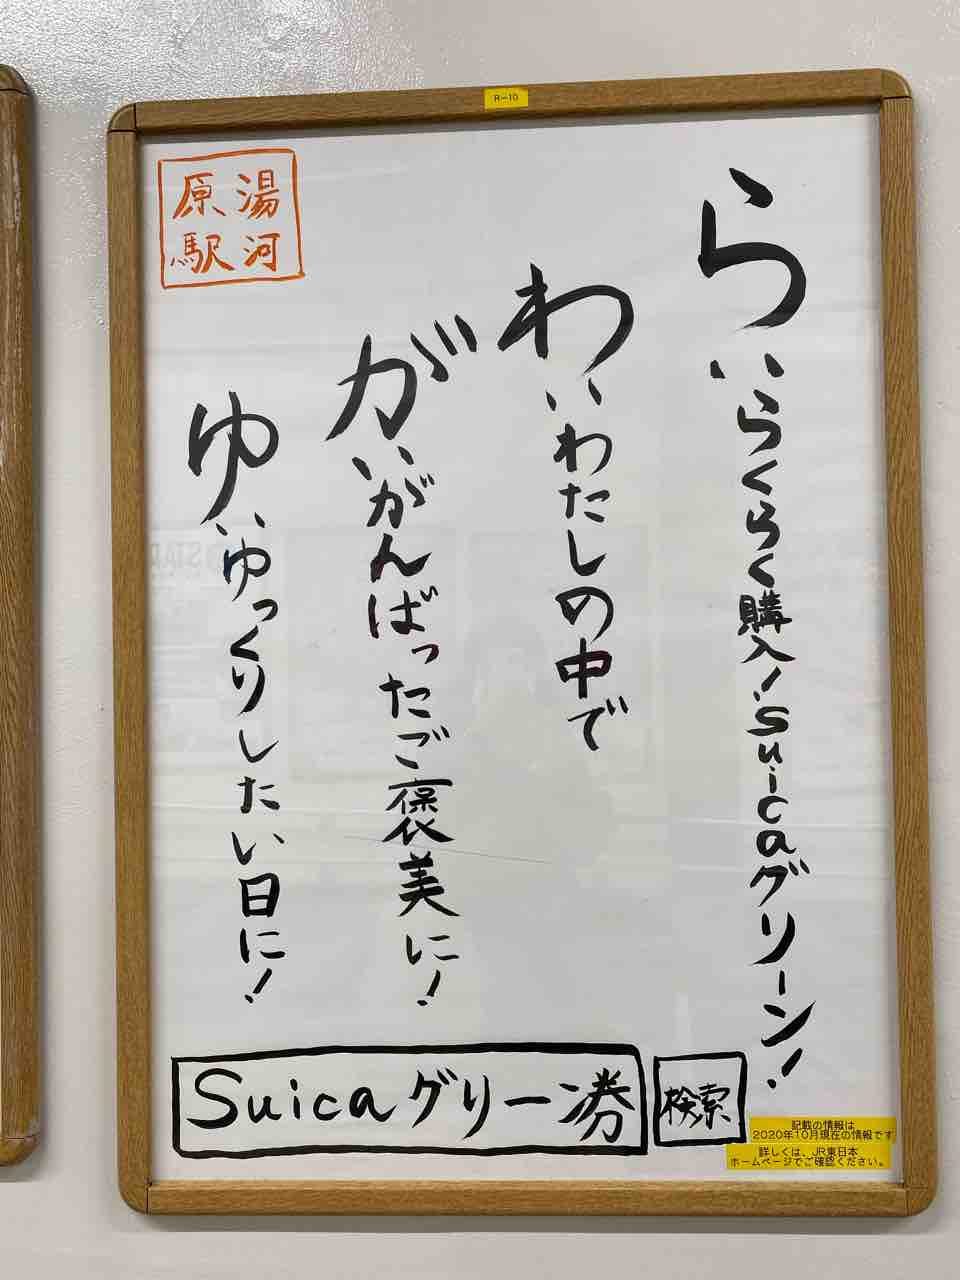 R-10
ら‥らくらく購入!Suicaグリーン!
わ‥わたしの中で
が‥がんばったご褒美に!
ゆ‥ゆっくりしたい日に!
湯河
原駅
Suicaグリーン券 検索
記載の情報は
2020年10月現在の情報です
詳しくは、JR東日本
ホームページでご確認ください。